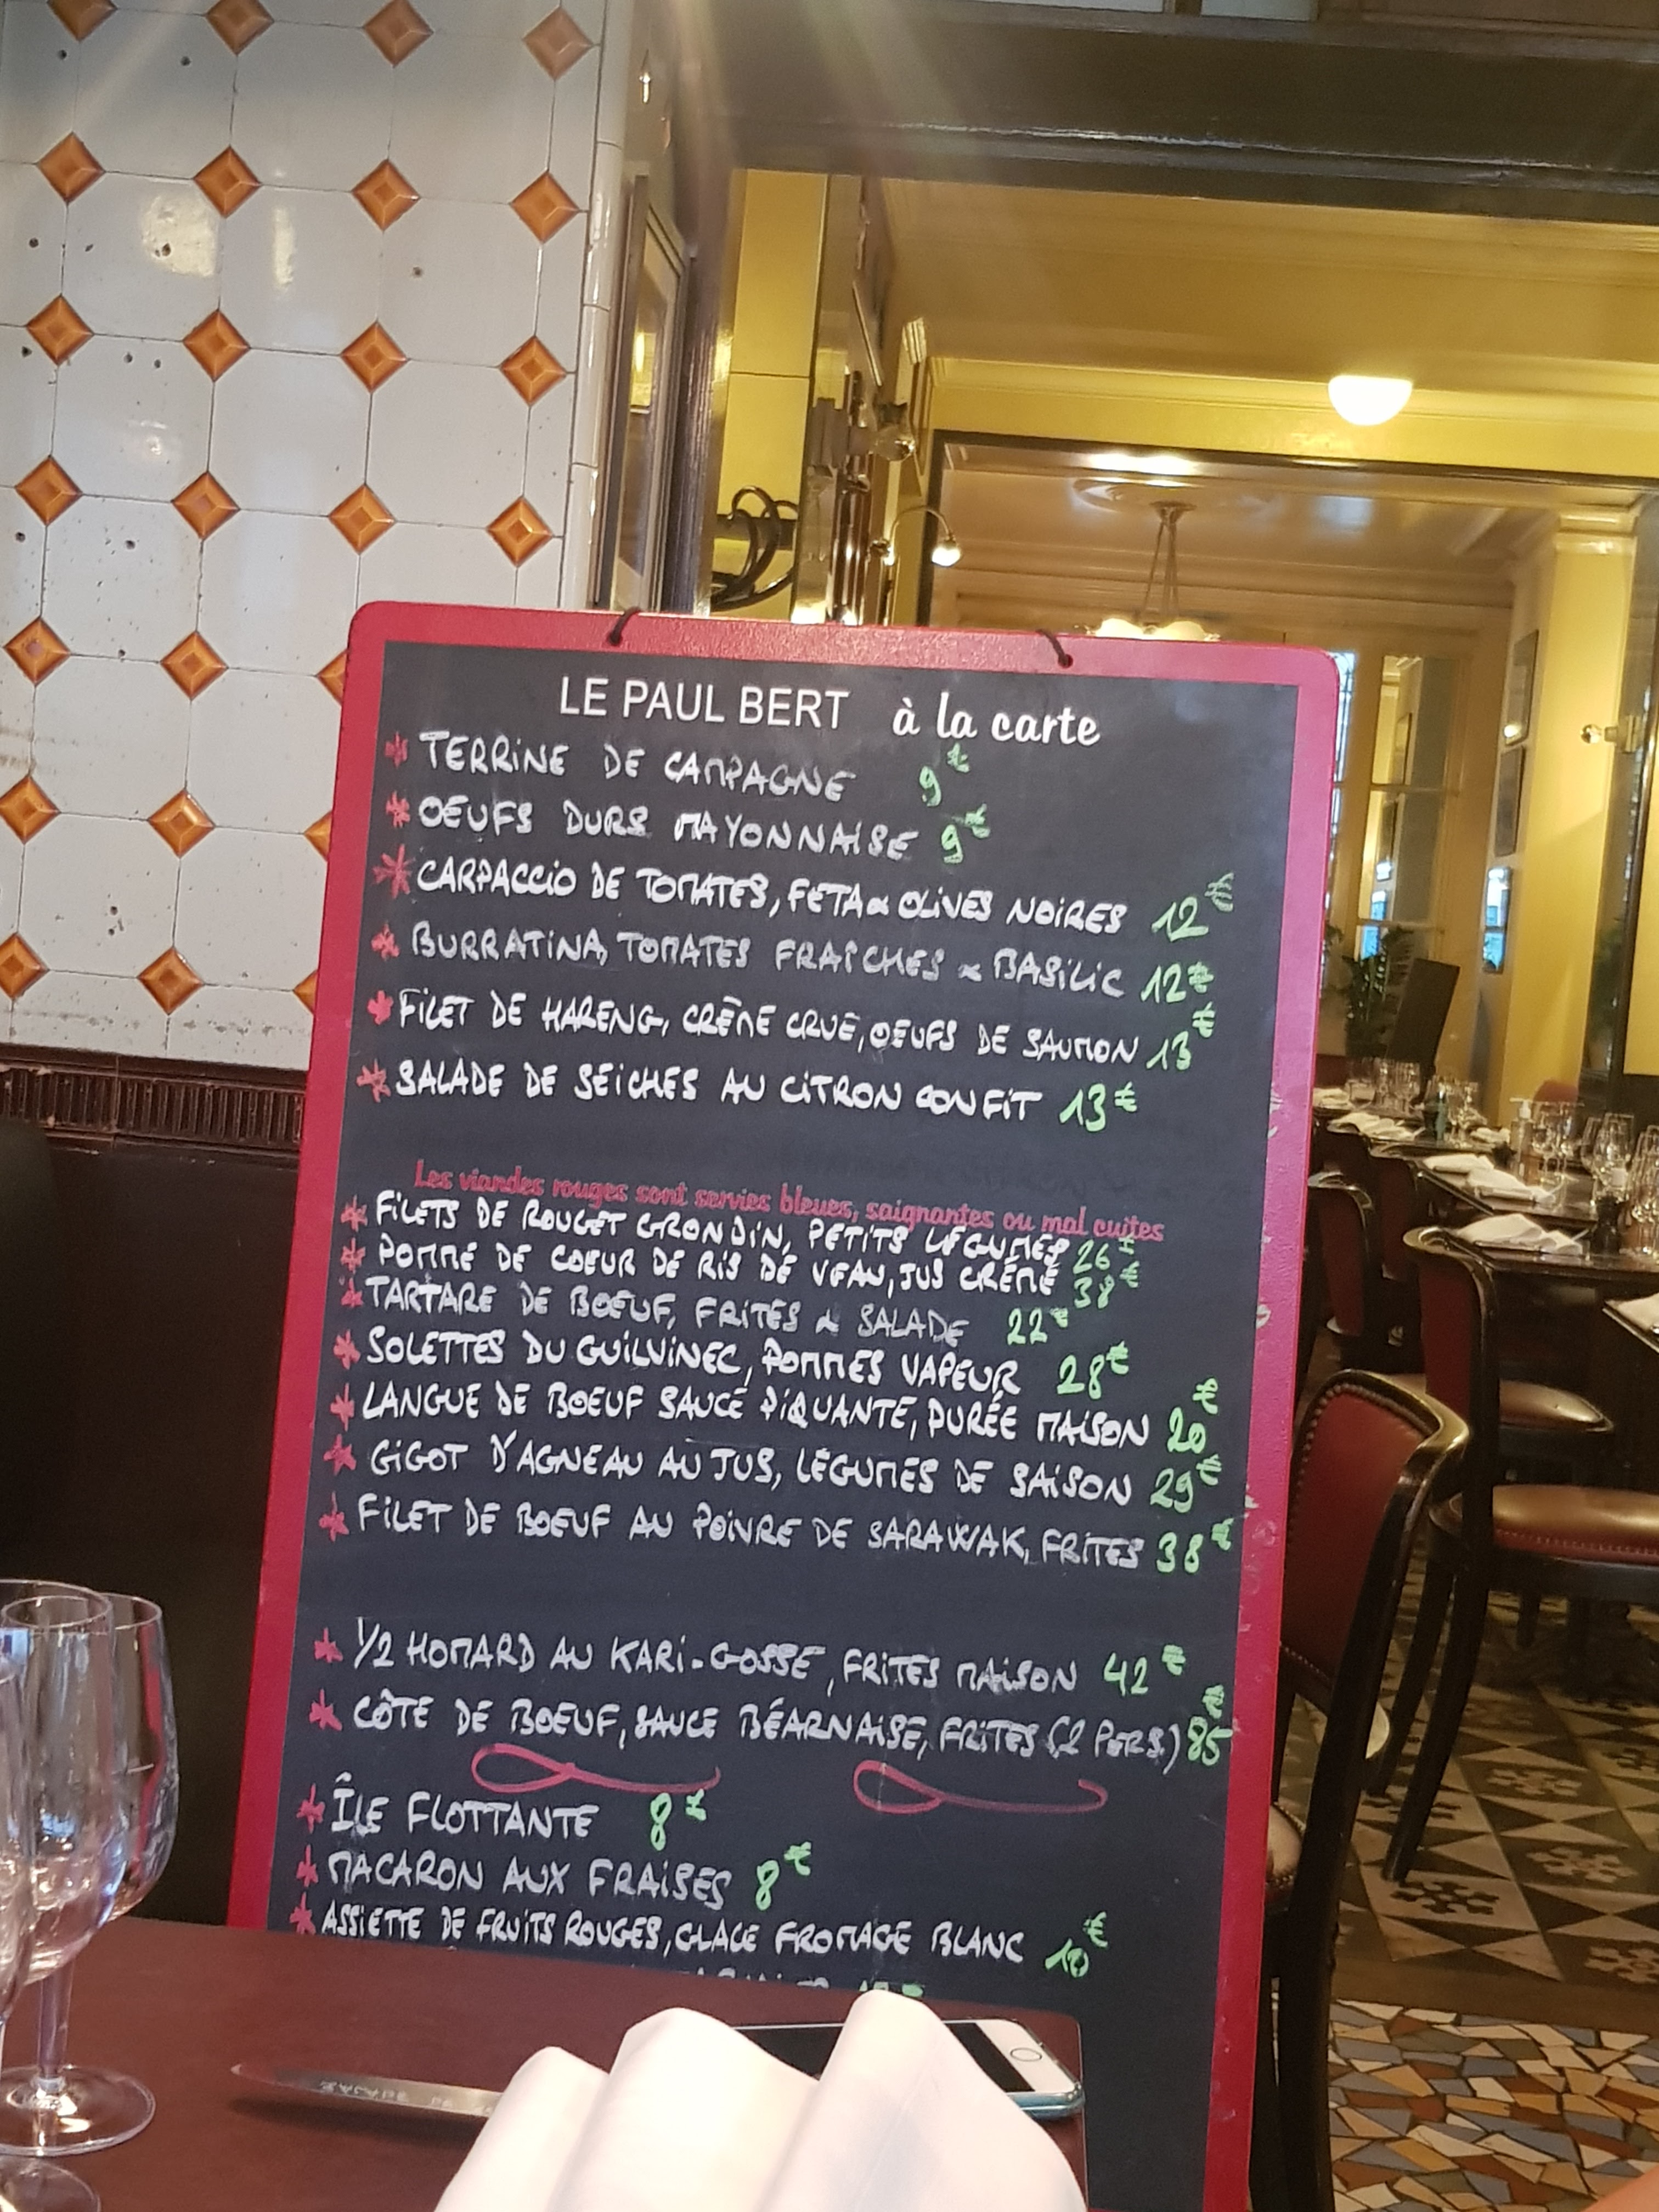 LE PAUL BERT à la carte
* TERRINE DE CAMPAGNE 9€
* OEUFS DURS MAYONNAISE 9€
* CARPACCIO DE TOMATES, FETA & OLIVES NOIRES 12€
* BURRATINA, TOMATES FRAÎCHES & BASILIC 12€
* FILET DE HARENG, CRÈME CRUE, OEUFS DE SAUMON 13€
* SALADE DE SEICHES AU CITRON CONFIT 13€
Les viandes rouges sont servies bleues, saignantes ou mal cuites
* FILETS DE ROUGET GRONDIN, PETITS LÉGUMES 26€
* POMME DE COEUR DE RIS DE VEAU, JUS CRÉMÉ 38€
* TARTARE DE BOEUF, FRITES & SALADE 22€
* SOLETTES DU GUILVINEC, POMMES VAPEUR 28€
* LANGUE DE BOEUF SAUCE PIQUANTE, PURÉE MAISON 20€
* GIGOT D'AGNEAU AU JUS, LÉGUMES DE SAISON 29€
* FILET DE BOEUF AU POIVRE DE SARAWAK, FRITES 38€
* 1/2 HOMARD AU KARI-GOSSE, FRITES MAISON 42€
* CÔTE DE BOEUF, SAUCE BÉARNAISE, FRITES (2 PERS.) 85€
* ÎLE FLOTTANTE 8€
* MACARON AUX FRAISES 8€
* ASSIETTE DE FRUITS ROUGES, GLACE FROMAGE BLANC 10€